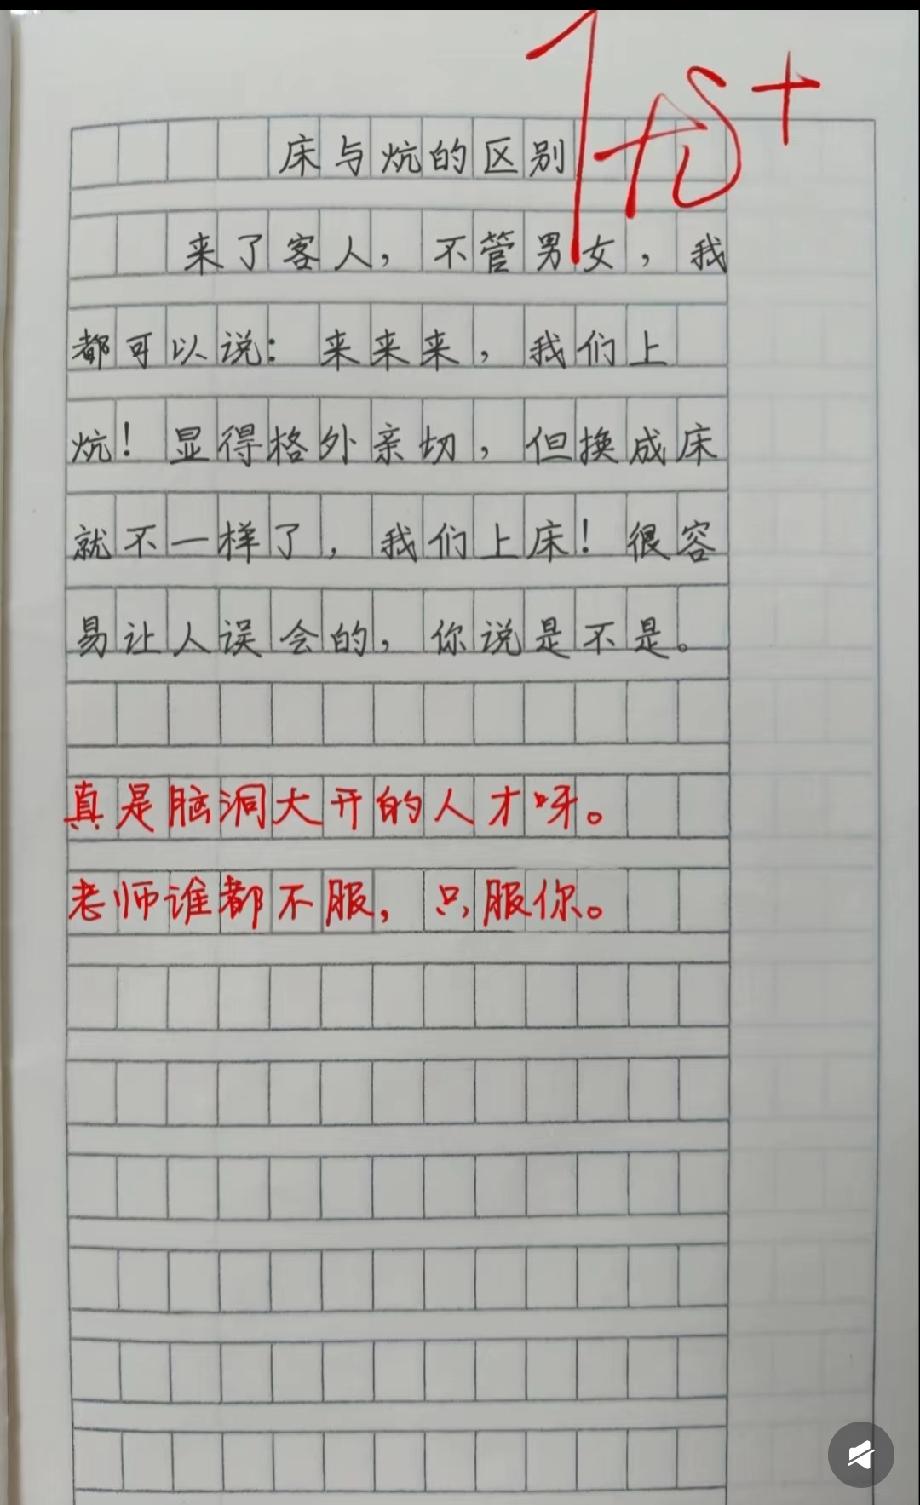 优+
床与炕的区别
来了客人，不管男女，我
都可以说：来来来，我们上
炕！显得格外亲切，但换成床
就不一样了，我们上床！很容
易让人误会的，你说是不是。
真是脑洞大开的人才呀。
老师谁都不服，只服你。